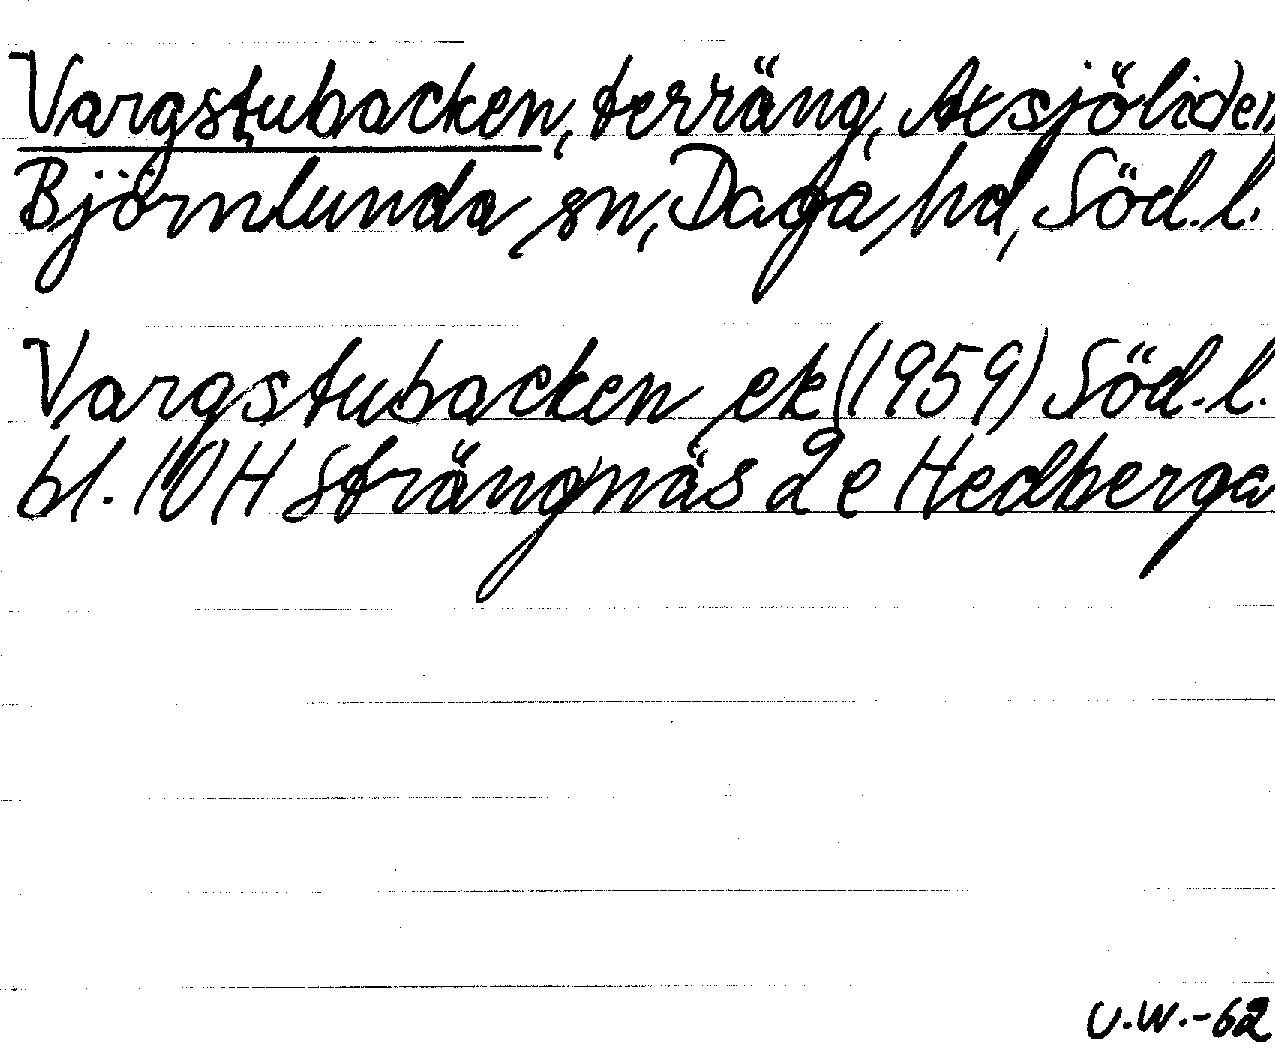 Vargstubacken, terräng, Axsjöliden
Björnlunda sn, Daga hd, Söd.l.
Vargstubacken ek (1959) Söd.l.
bl. 10H Strängnäs 2e Hedberga
U.W.-62